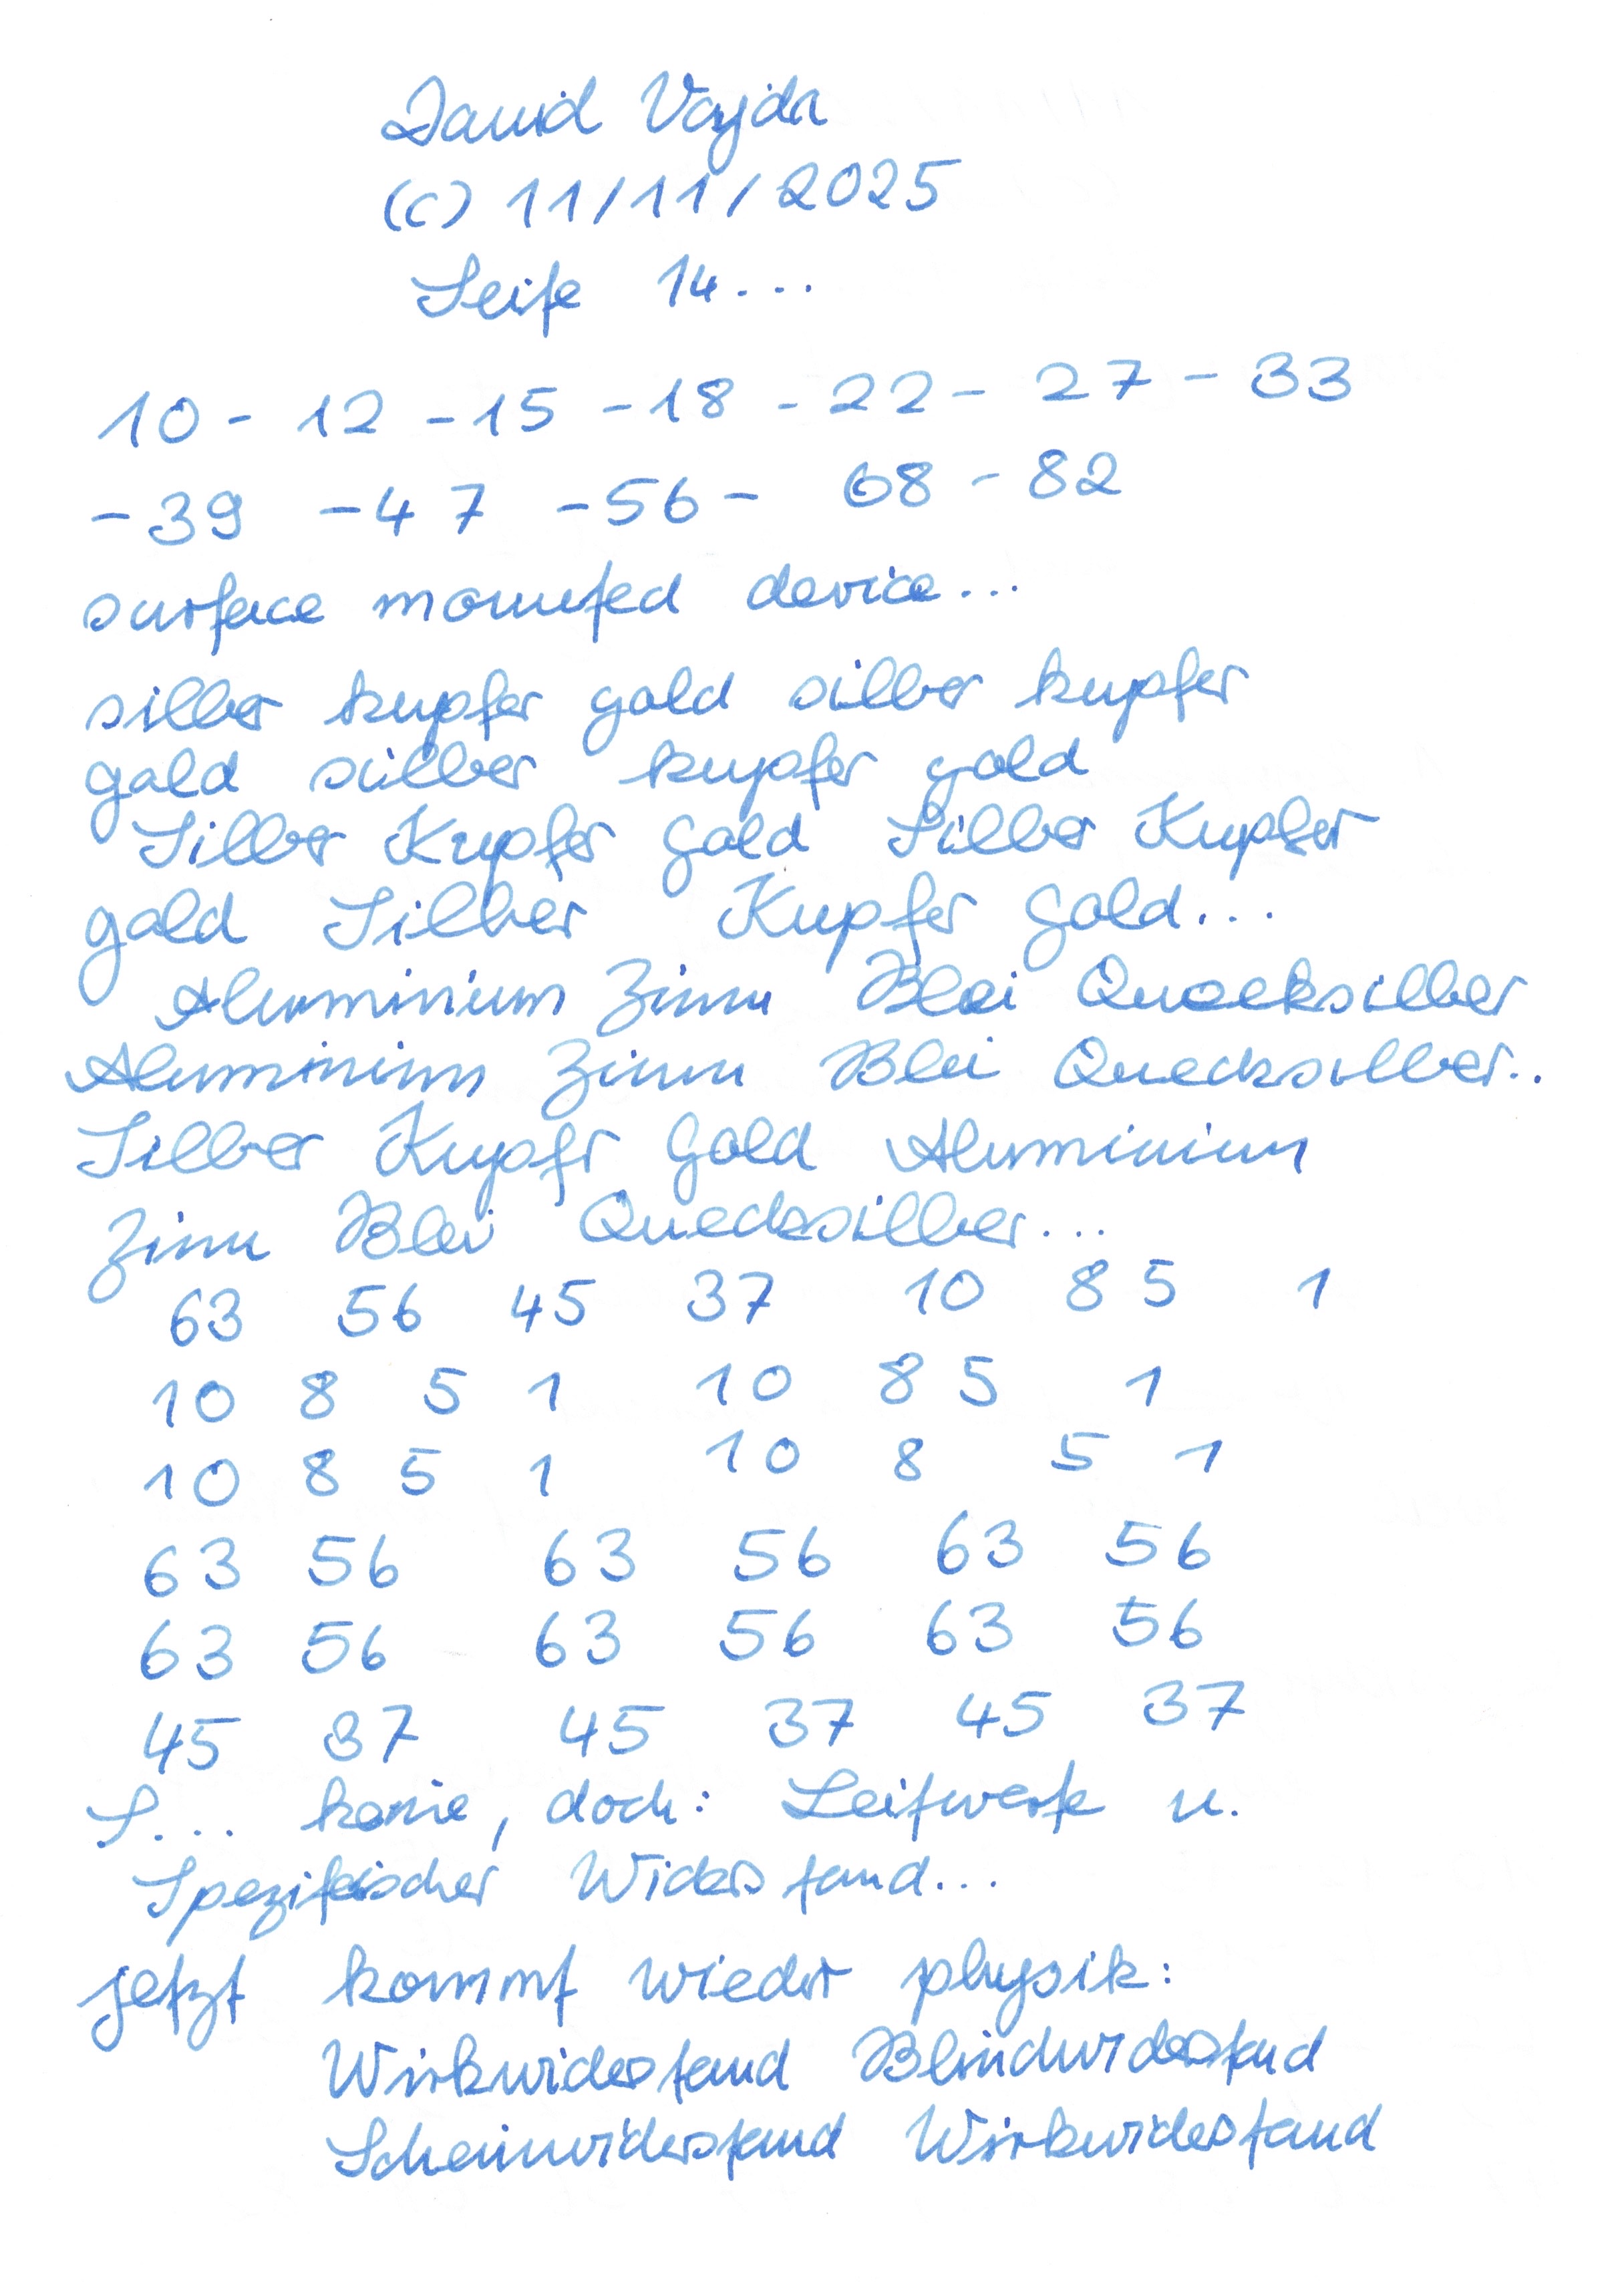 David Vajda
(c) 11/11/2025
Seite 14...
10 - 12 - 15 - 18 - 22 - 27 - 33
- 39 - 47 - 56 - 68 - 82
surface mounted device...
silber kupfer gold silber kupfer
gold silber kupfer gold
Silber Kupfer Gold Silber Kupfer
gold Silber Kupfer Gold...
Aluminium Zinn Blei Quecksilber
Aluminium Zinn Blei Quecksilber..
Silber Kupfr Gold Aluminium
Zinn Blei Quecksilber...
63 56 45 37 10 8 5 1
10 8 5 1 10 8 5 1
10 8 5 1 10 8 5 1
63 56 63 56 63 56
63 56 63 56 63 56
45 37 45 37 45 37
S... keine, doch: Leitwerte u.
Spezifischer Widerstand...
jetzt kommt wieder physik:
Wirkwiderstand Blindwiderstand
Scheinwiderstand Wirkwiderstand